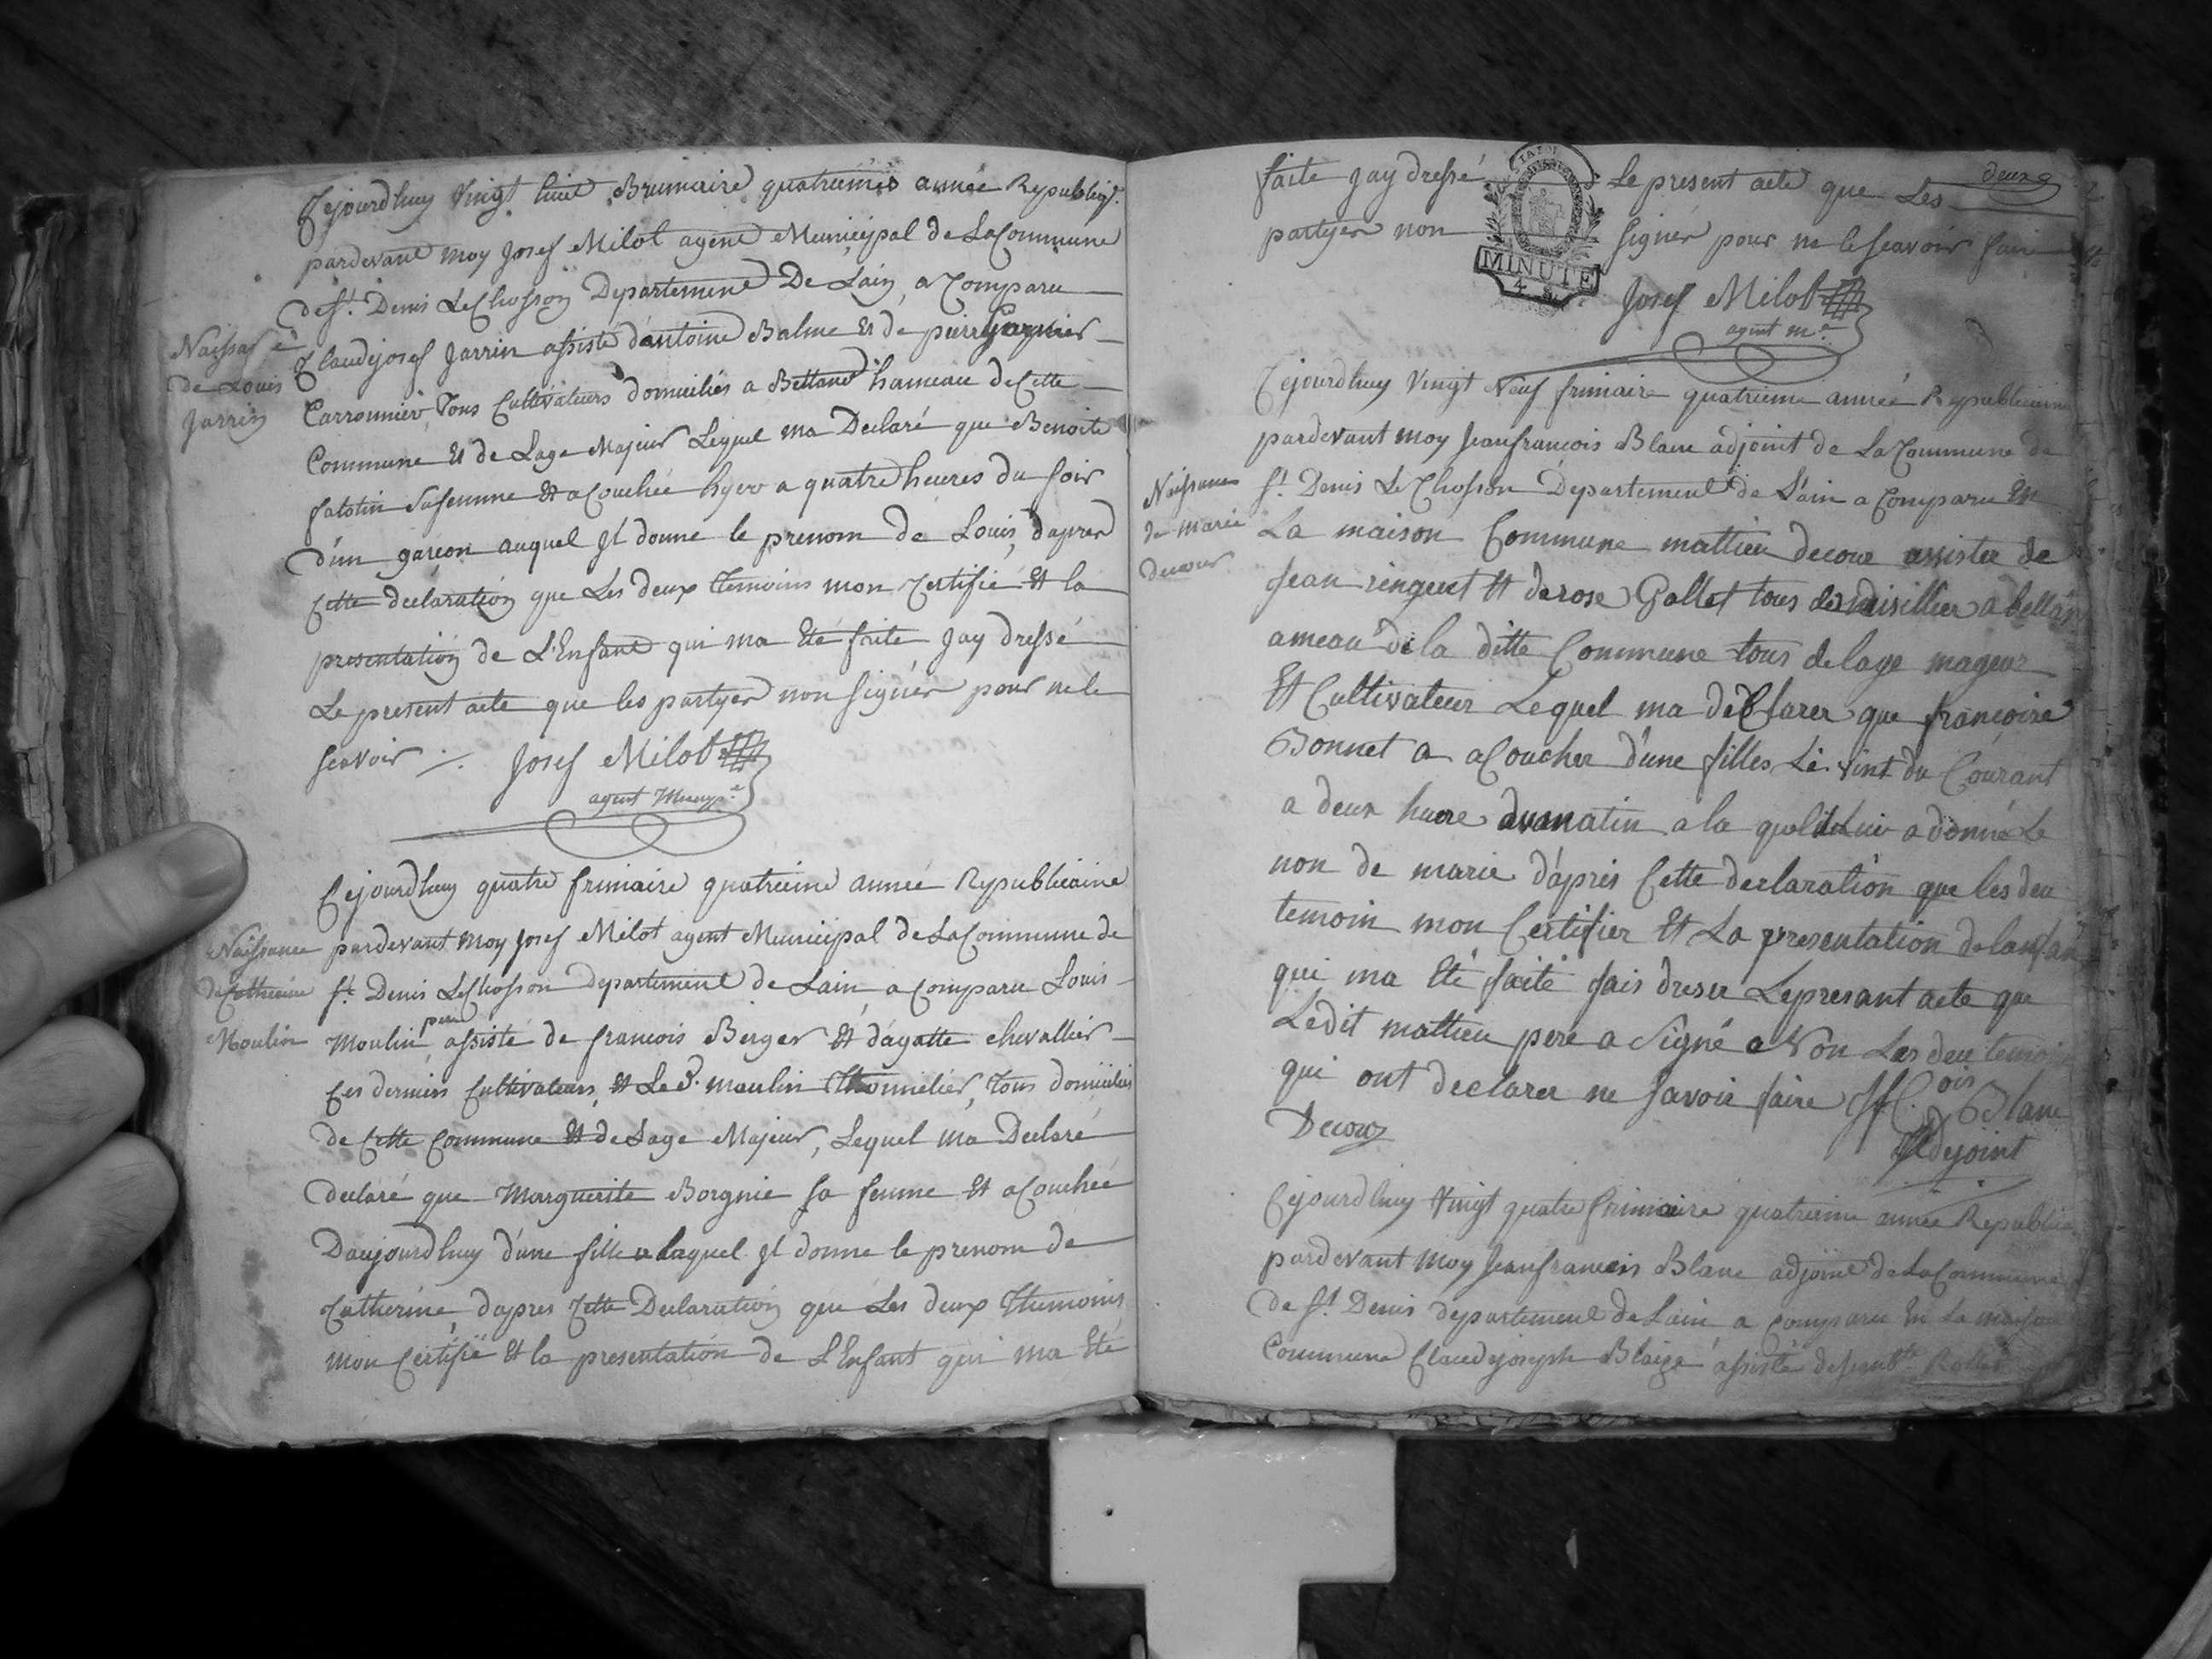 Cejourdhuy Vingt huit Brumaire quatriemes année Republiq.
pardevant moy Josef Milot agent Municipal de La Commune
de St. Denis Le Chosson Departement De Lain, a Comparu
Naissance
de Louis
Jarrin
Claudejosef Jarrin assisté dantoine Balme Et de pierre
Carronnier Tous Cultivateurs domiciliés a Bettant hameau de Cette
Commune Et de Lage Majeur Lequel ma Declaré que Benoite
fatotin Safemme Et acouchée hyer a quatre heures du soir
d'un garcon auquel Jl donne le prenom de Louis, dapres
Cette declaration que Les deux Temoins mon Certifié Et la
presentation de L'Enfant qui ma Eté faite Jay dressé
Le present acte que les partyes non signér pour ne le
scavoir ./. Josef Milot
agent Municip.
Cejourdhuy quatre frimaire quatrieme année Republicaine
Naissance
de Catherine
Moulin
pardevant moy Josef Milot agent Municipal de La Commune de
St. Denis LeChosson Departement de Lain a Comparu Louis
Moulin pere assisté de francois Berger Et d'agatte chevallier
Ces derniers Cultivateurs, Et Le d. moulin Thonnelier, Tous domiciliés
de Cette Commune Et de Lage Majeur, Lequel ma Declaré
declaré que Marguerite Borgnie sa femme Et acouchée
Daujourdhuy d'une fille a laquel Jl donne le prenom de
Catherine, dapres Cette Declaration que Les deux Themoins
mon Certifié Et la presentation de L'Enfant qui ma Eté
deux
faite Jay dressé Le present acte que Les
partyes non signér pour ne le scavoir faire
MINUTE
Josef Milot
agent m.
Cejourdhuy Vingt Neuf frimaire quatrieme année Republicaine
pardevant moy Jeanfrancois Blanc adjoint de La Commune de
Naissance
de marie
decour
St. Denis Le Chosson Departement de L'ain a Comparu En
La maison Commune mattieu decour assister de
Jean ringuet Et de rose Gallet tous a
ameau de la ditte Commune tous delage mageur
Et Cultivateur Lequel ma declarer que francoise
Bonnet a acoucher d'une filles Le vint du Courant
a deux hure dumatin a la quel a donné Le
non de marie d'apris Cette declaration que les deu
temoin mon Certifier Et La presentation delanfan
qui ma Eté faite fais dreser Lepresant acte que
Ledit mattieu pere a Signé a Non Les deu temoin
qui ont declarer ne savoir faire Blanc
Decour
adjoint
Cejourdhuy Vingt quatre frimaire quatrieme année Republic
pardevant moy Jeanfrancois Blanc adjoint de La Commune
de St. Denis departement de Lain a Comparu En La maison
Commune Claudejoseph Blaize assisté de